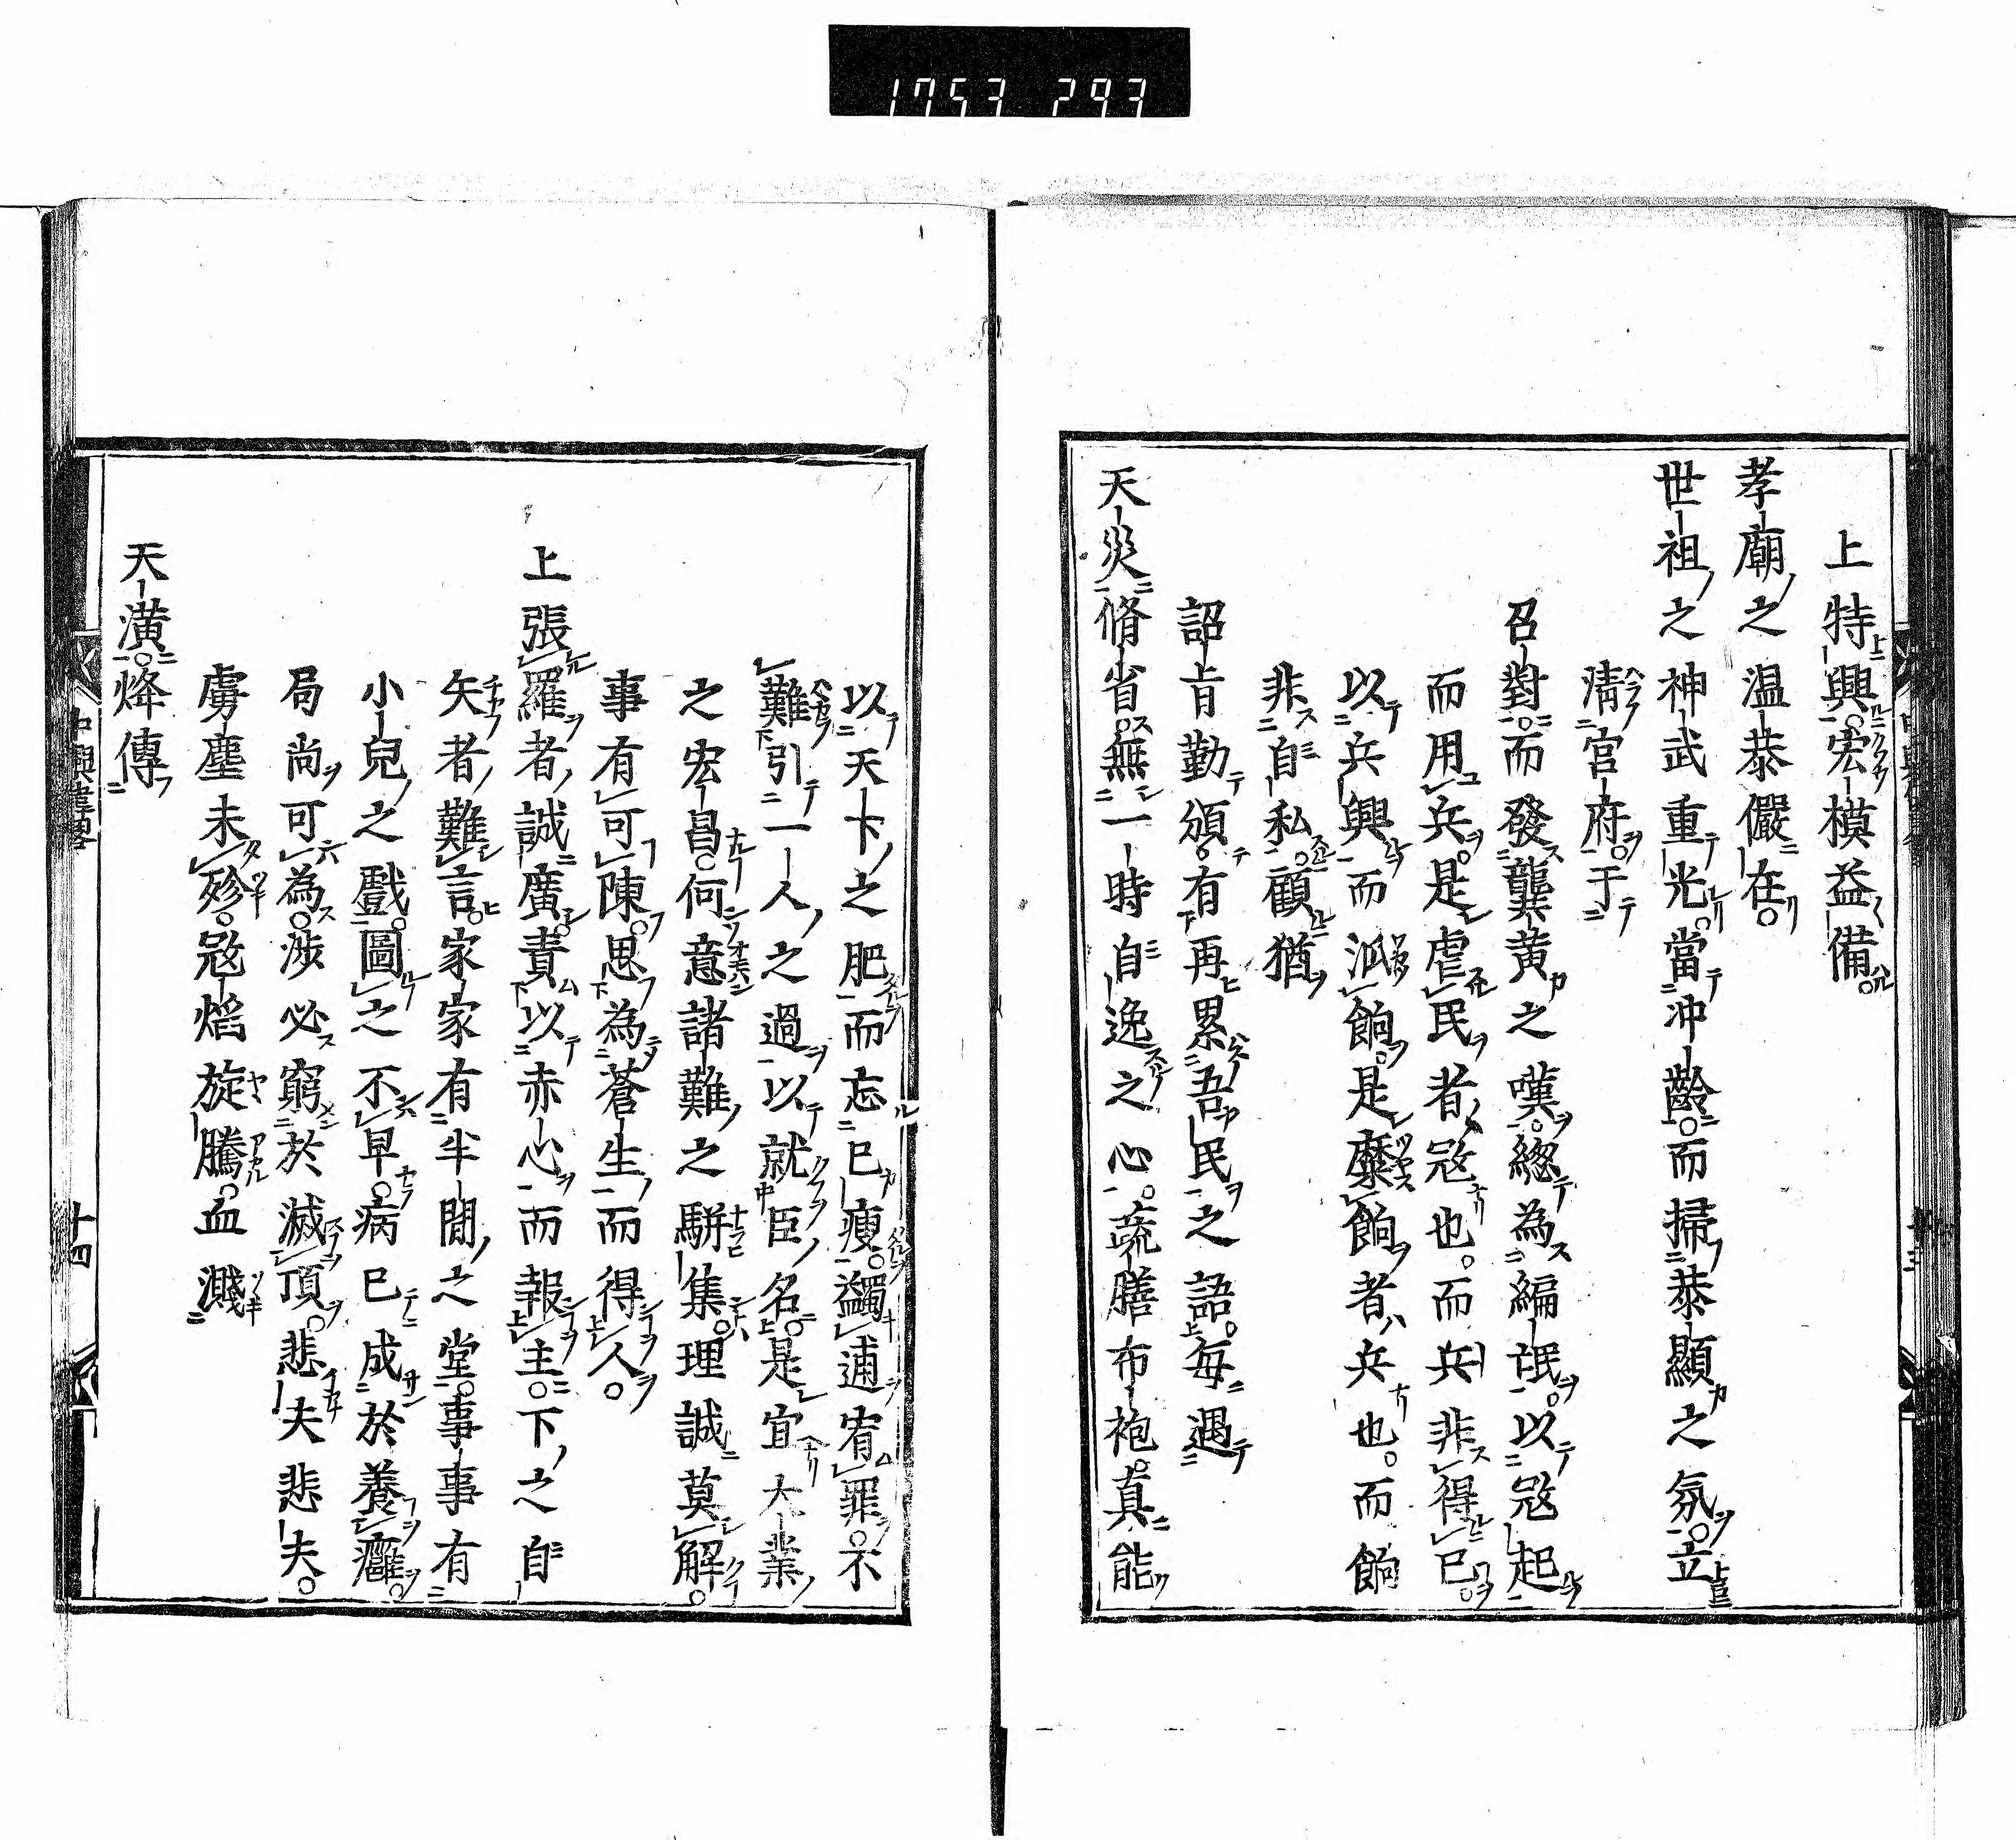 1753 293
上特興宏模益備
孝廟之温恭儼在
世祖之神武重光當冲齡而掃恭顯之氛立
清宮府于
召對而發龔黄之嘆緫為編氓以寇起
而用兵是虐民者寇也而兵非得已
以兵興而派餉是糜餉者兵也而餉
非自私顧猶
詔旨勤頒有再累吾民之語每遇
天災脩省無一時自逸之心蔬膳布袍真能
以天下之肥而忘己瘦蠲逋宥罪不
難引一人之過以就臣名是宜大業
之宏昌何意諸難之駢集理誠莫解
事有可陳思為蒼生而得人
上張羅者誠廣責以赤心而報主下之自
矢者難言家家有半間之堂事事有
小兒之戲圖之不早病已成於養癰
局尚可為涉必窮於滅頂悲夫悲夫
虜塵未殄寇焰旋騰血濺
天潢烽傳
中興偉畧
十四